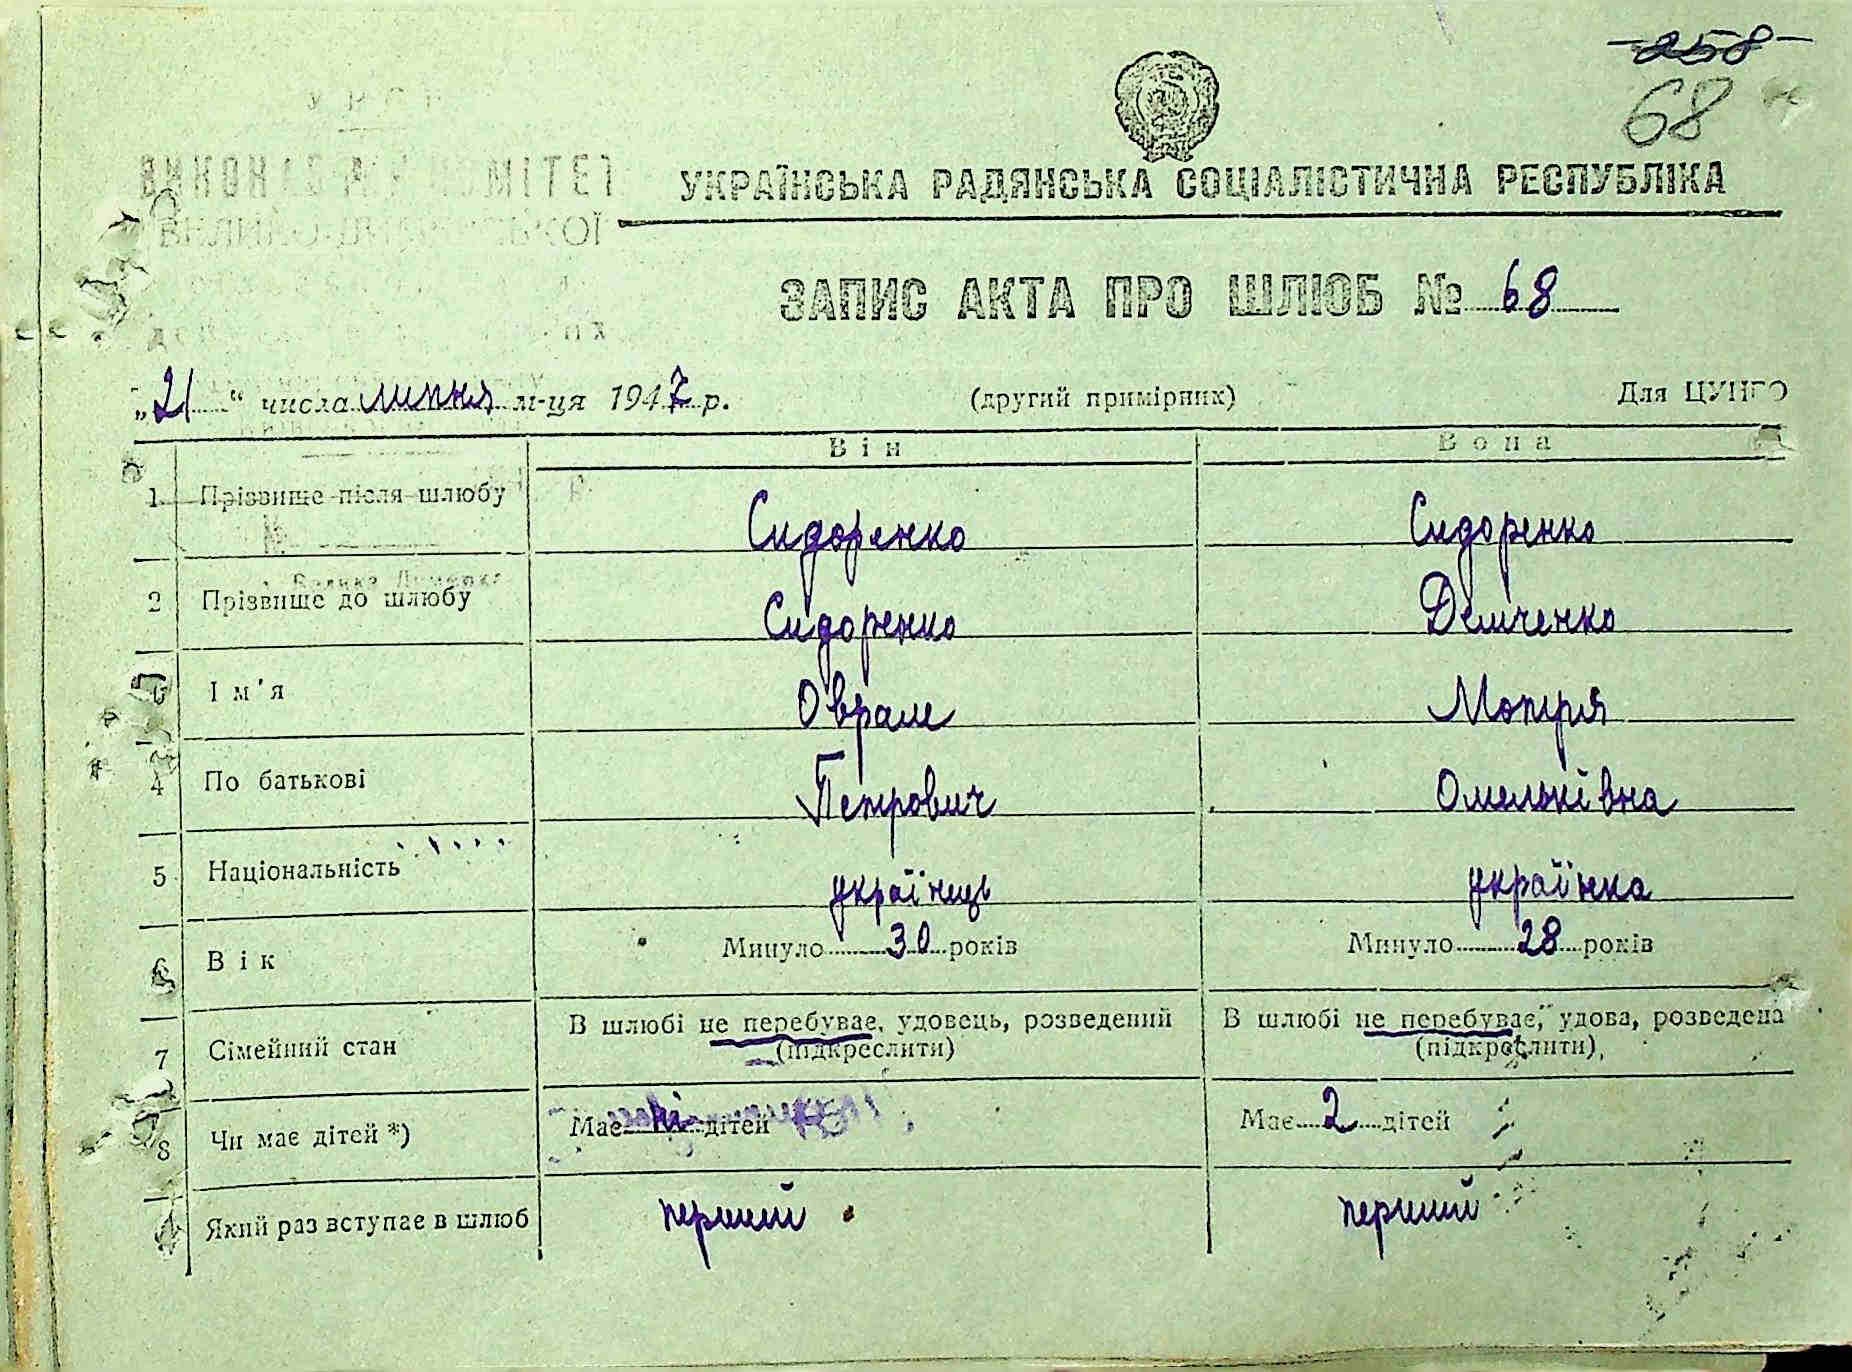 258
68
УКРАЇНСЬКА РАДЯНСЬКА СОЦІАЛІСТИЧНА РЕСПУБЛІКА
ЗАПИС АКТА ПРО ШЛЮБ № 68
„21“ числа липня м-ця 1947 р. (другий примірник) Для ЦУНГО
Він Вона
1 Прізвище після шлюбу Сидоренко Сидоренко
2 Прізвище до шлюбу Сидоренко Демченко
Ім'я Оврам Мотря
4 По батькові Петрович Омельківна
5 Національність українець українка
6 Вік Минуло 30 років Минуло 28 років
7 Сімейний стан В шлюбі не перебуває, удовець, розведений (підкреслити) В шлюбі не перебуває, удова, розведена (підкреслити)
8 Чи має дітей *) Має ні дітей Має 2 дітей
Який раз вступає в шлюб перший перший